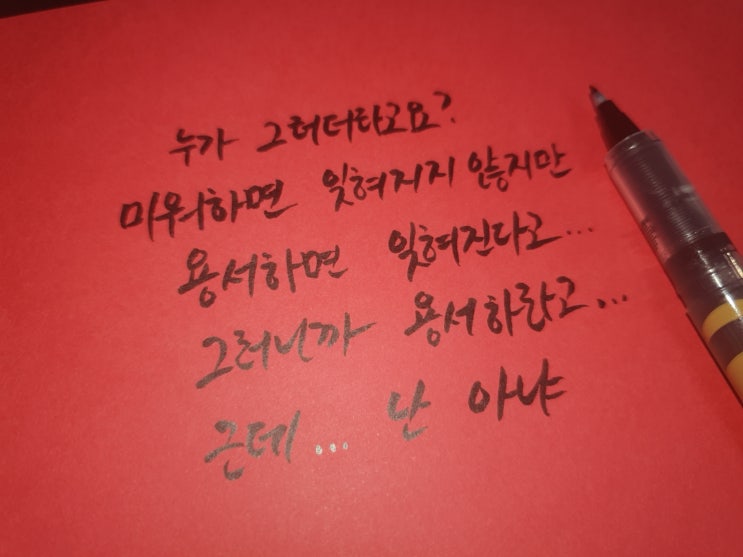 누가 그러더라고요?
미워하면 잊혀지지 않지만
용서하면 잊혀진다고...
그러니까 용서하라고...
근데... 난 아냐